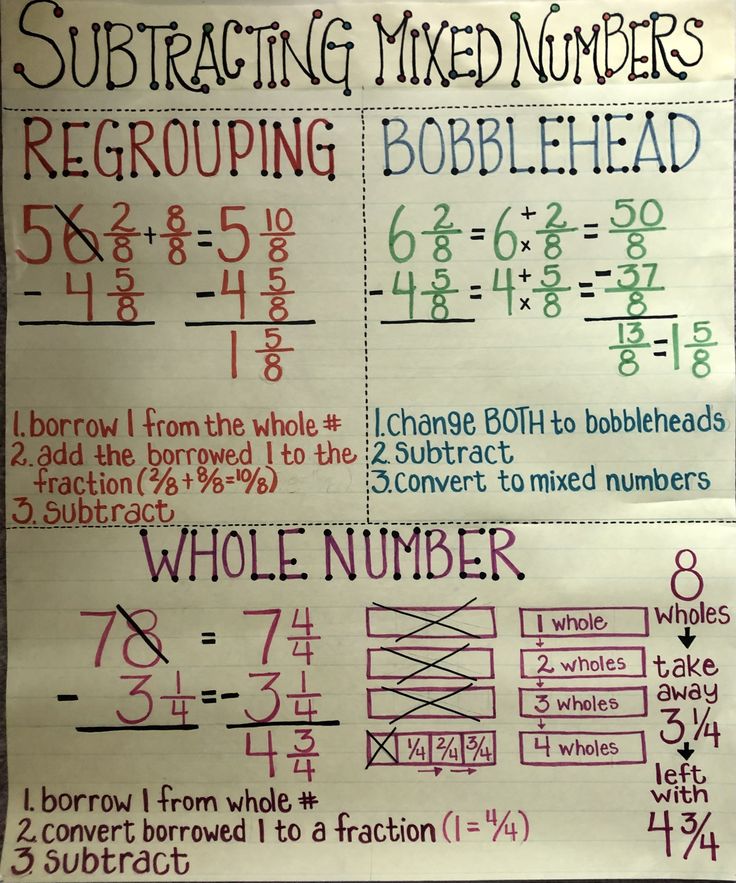 SUBTRACTING MIXED NUMBERS
REGROUPING
5 6 2/8 + 8/8 = 5 10/8
- 4 5/8 - 4 5/8
1 5/8
1. borrow 1 from the whole #
2. add the borrowed 1 to the
fraction (2/8 + 8/8 = 10/8)
3. subtract
BOBBLEHEAD
6 2/8 = 6 + x 2/8 = 50/8
- 4 5/8 = 4 + x 5/8 = - 37/8
13/8 = 1 5/8
1. change BOTH to bobbleheads
2. subtract
3. convert to mixed numbers
WHOLE NUMBER
7 8 = 7 4/4
- 3 1/4 = - 3 1/4
4 3/4
1/4 2/4 3/4
1 whole
2 wholes
3 wholes
4 wholes
8
wholes
take
away
3 1/4
left
with
4 3/4
1. borrow 1 from whole #
2. convert borrowed 1 to a fraction (1 = 4/4)
3. subtract